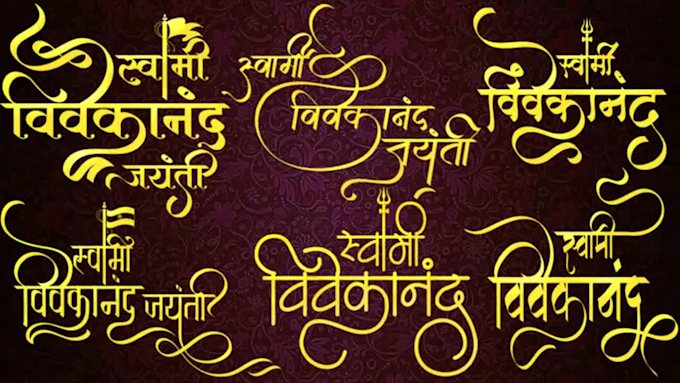 स्वामी
विवेकानंद
जयंती
स्वामी
विवेकानंद
जयंती
स्वामी
विवेकानंद
स्वामी
विवेकानंद जयंती
स्वामी
विवेकानंद
स्वामी
विवेकानंद